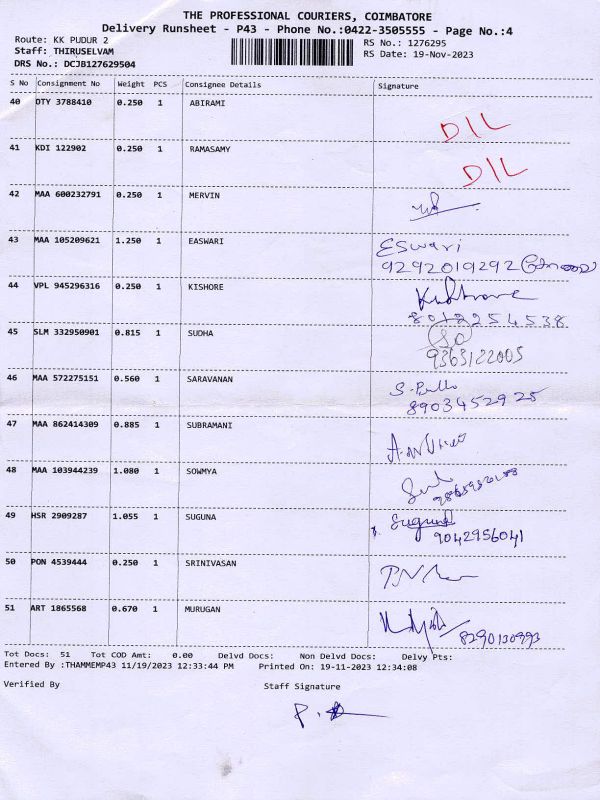 THE PROFESSIONAL COURIERS, COIMBATORE
Delivery Runsheet - P43 - Phone No.:0422-3505555 - Page No.:4
Route: KK PUDUR 2 RS No.: 1276295
Staff: THIRUSELVAM RS Date: 19-Nov-2023
DRS No.: DCJB127629504
S No Consignment No Weight PCS Consignee Details Signature
40 OTY 3788410 0.250 1 ABIRAMI DIL
41 KDI 122902 0.250 1 RAMASAMY DIL
42 MAA 600232791 0.250 1 MERVIN
43 MAA 105209621 1.250 1 EASWARI Eswari
9292019292
44 VPL 945296316 0.250 1 KISHORE
8012254538
45 SLM 332950901 0.815 1 SUDHA
9363122005
46 MAA 572275151 0.560 1 SARAVANAN
8903452925
47 MAA 862414309 0.885 1 SUBRAMANI
48 MAA 103944239 1.080 1 SOWMYA
49 HSR 2909287 1.055 1 SUGUNA Suguna
9042956041
50 PON 4539444 0.250 1 SRINIVASAN
51 ART 1865568 0.670 1 MURUGAN
8290130993
Tot Docs: 51 Tot COD Amt: 0.00 Delvd Docs: Non Delvd Docs: Delvy Pts:
Entered By :THAMMEMP43 11/19/2023 12:33:44 PM Printed On: 19-11-2023 12:34:08
Verified By Staff Signature